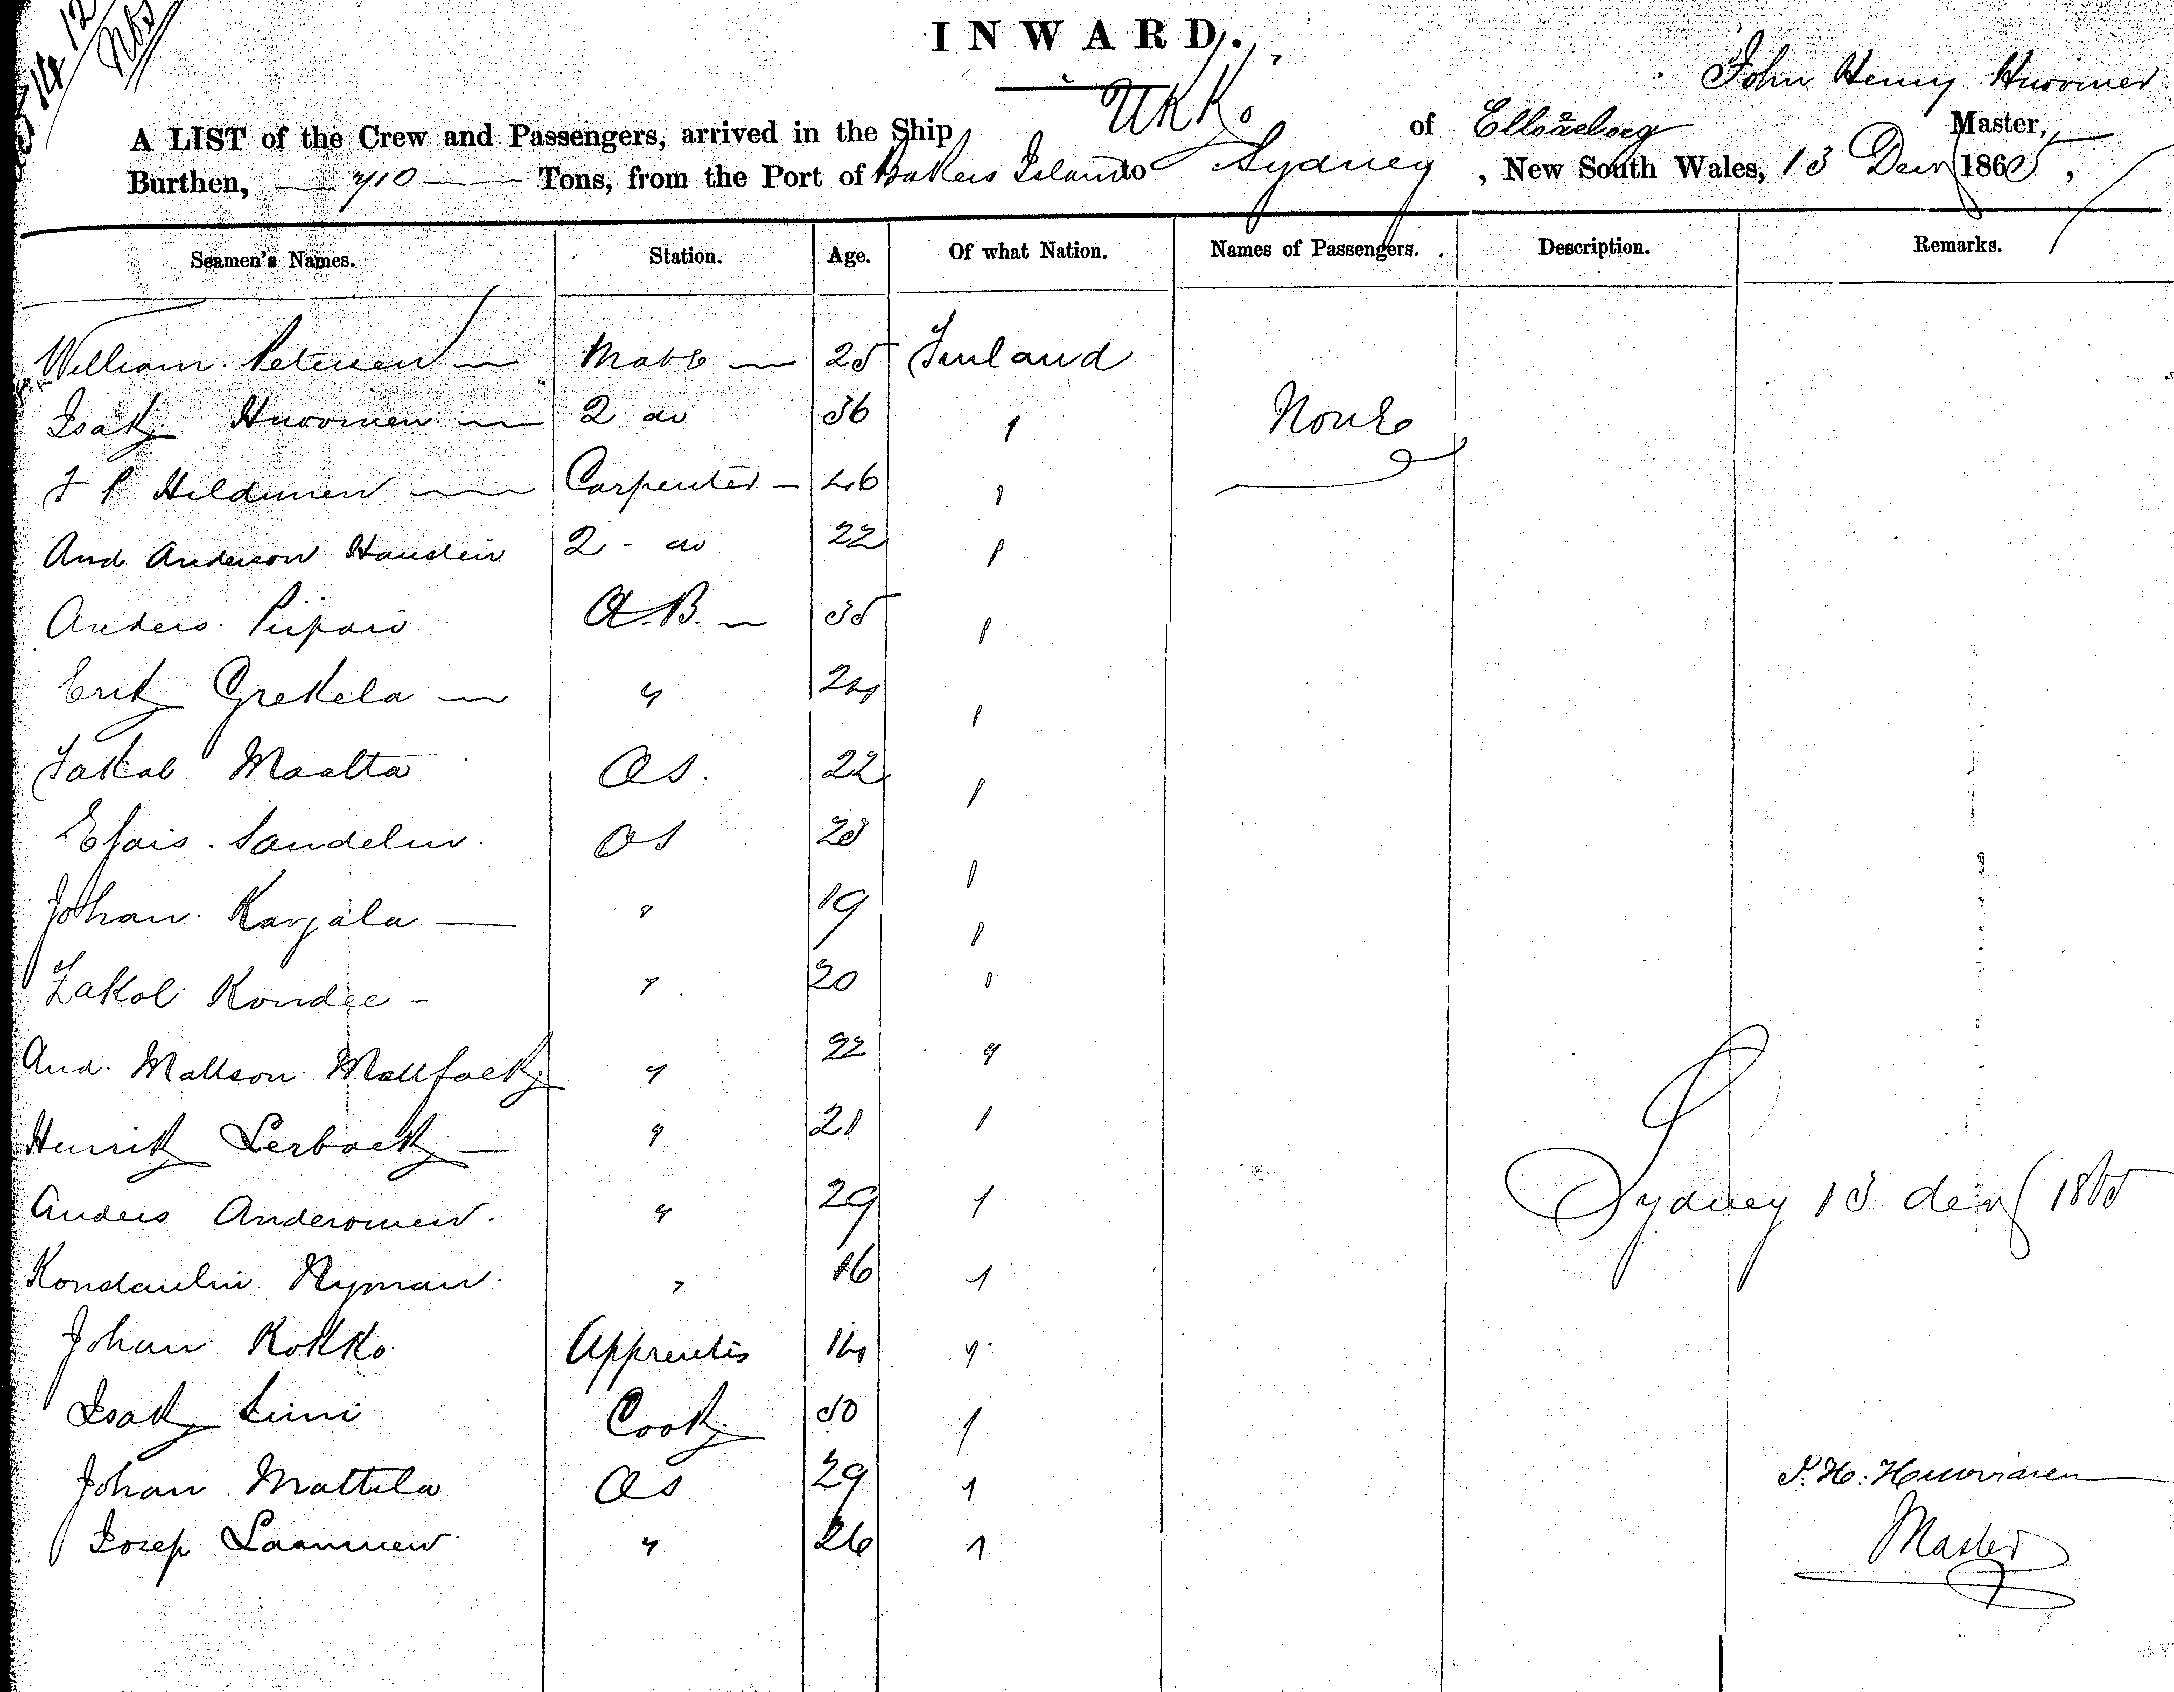 INWARD.
John Henry Huvoinen
A LIST of the Crew and Passengers, arrived in the Ship UKKo of Master,
Burthen, 710 Tons, from the Port of Bakers Island to Sydney, New South Wales, 13 Decr 1865,
Seamen's Names. Station. Age. Of what Nation. Names of Passengers. Description. Remarks.
William Petersen Mate 25 Finland
Isak Huvoinen 2 do 36 " None
J P Carpenter 46 "
And Anderson 2 - do 22 "
Anders A.B. 35 "
Erik Grekela " 24 "
Jakob Maalta OS. 22 "
Esais Sandelin OS 23 "
Johan Karjala " 19 "
Jakob " 20 "
And. Mattson " 22 "
Henrik Lerback " 21 "
Anders " 29 "
Nyman " 16 "
Johan Kokko Apprentis 14 "
Isak Cook 30 "
Johan Mattila OS 29 "
Josep " 26 "
Sydney 13 decr 1865
J. H.
Master